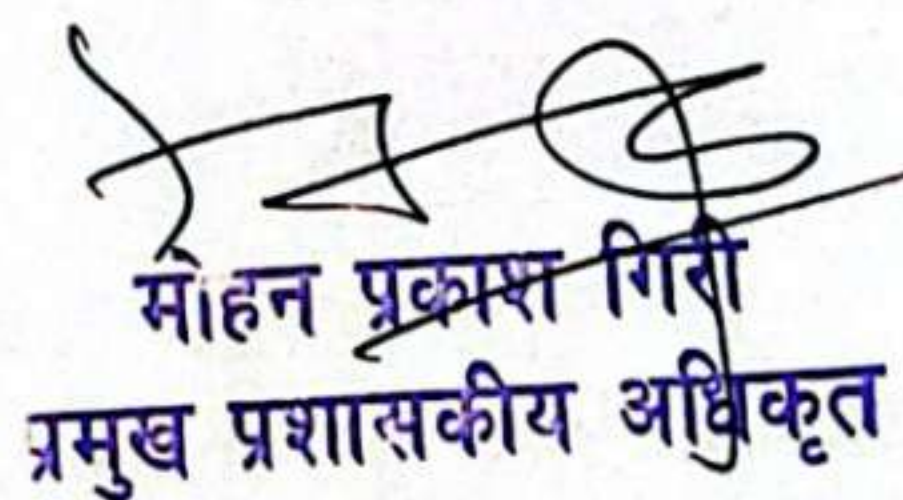 मोहन प्रकाश गिरी
प्रमुख प्रशासकीय अधिकृत